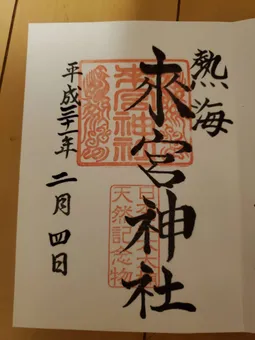 熱海
來宮神社
平成三十一年 二月 四日
來宮神社
天然記念物